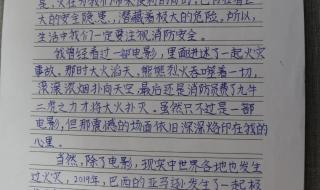 是,火在为我们带来便利的同时,也存在着巨
大的安全隐患,潜藏着极大的危险。所以,
生活中我们一定要注视消防安全。
我曾经看过一部电影,里面讲述了一起火灾
事故,那时大火滔天,熊熊烈火吞噬着一切,
滚滚浓烟扑向天空,最后还是消防员费了九牛
二虎之力才将大火扑灭。虽然只不过是一部
电影,但那震撼的场面依旧深深烙印在我的
心里。
当然,除了电影,现实中世界各地也发生
过火灾,2019年,巴西的亚马逊发生了一起